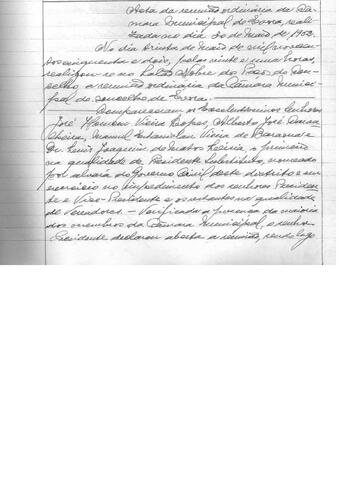 Acta da reunião ordinária da Câ-
mara Municipal de Évora, reali-
zada no dia 30 de Maio de 1952.
No dia trinta de Maio de mil novecen-
tos cinquenta e dois, pelas vinte e uma horas,
realizou-se no Salão Nobre dos Paços do Con-
celho, a reunião ordinária da Câmara Munici-
pal do concelho de Évora.
Compareceram os Excelentíssimos Senhores
José Vieira Lopes, Alberto José
Manuel Estanislau Vieira de Barahona e
Dr. Luís Joaquim de Matos o primeiro
na qualidade de Presidente Substituto, nomeado
por alvará do Governo Civil deste distrito e em
exercício no impedimento dos senhores Presiden-
te e Vice-Presidente e os restantes na qualidade
de Vereadores. - Verificada a presença da maioria
dos membros da Câmara Municipal, o senhor
Presidente declarou aberta a reunião, sendo logo